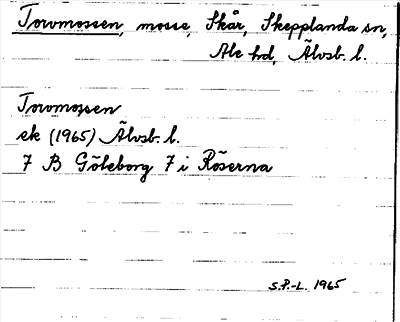 Torvmossen, mosse, Skår, Skepplanda sn,
Ale hd, Älvsb. l.
Torvmossen
ek (1965) Älvsb. l.
7 B Göteborg 7 i Röserna
S.P.-L. 1965